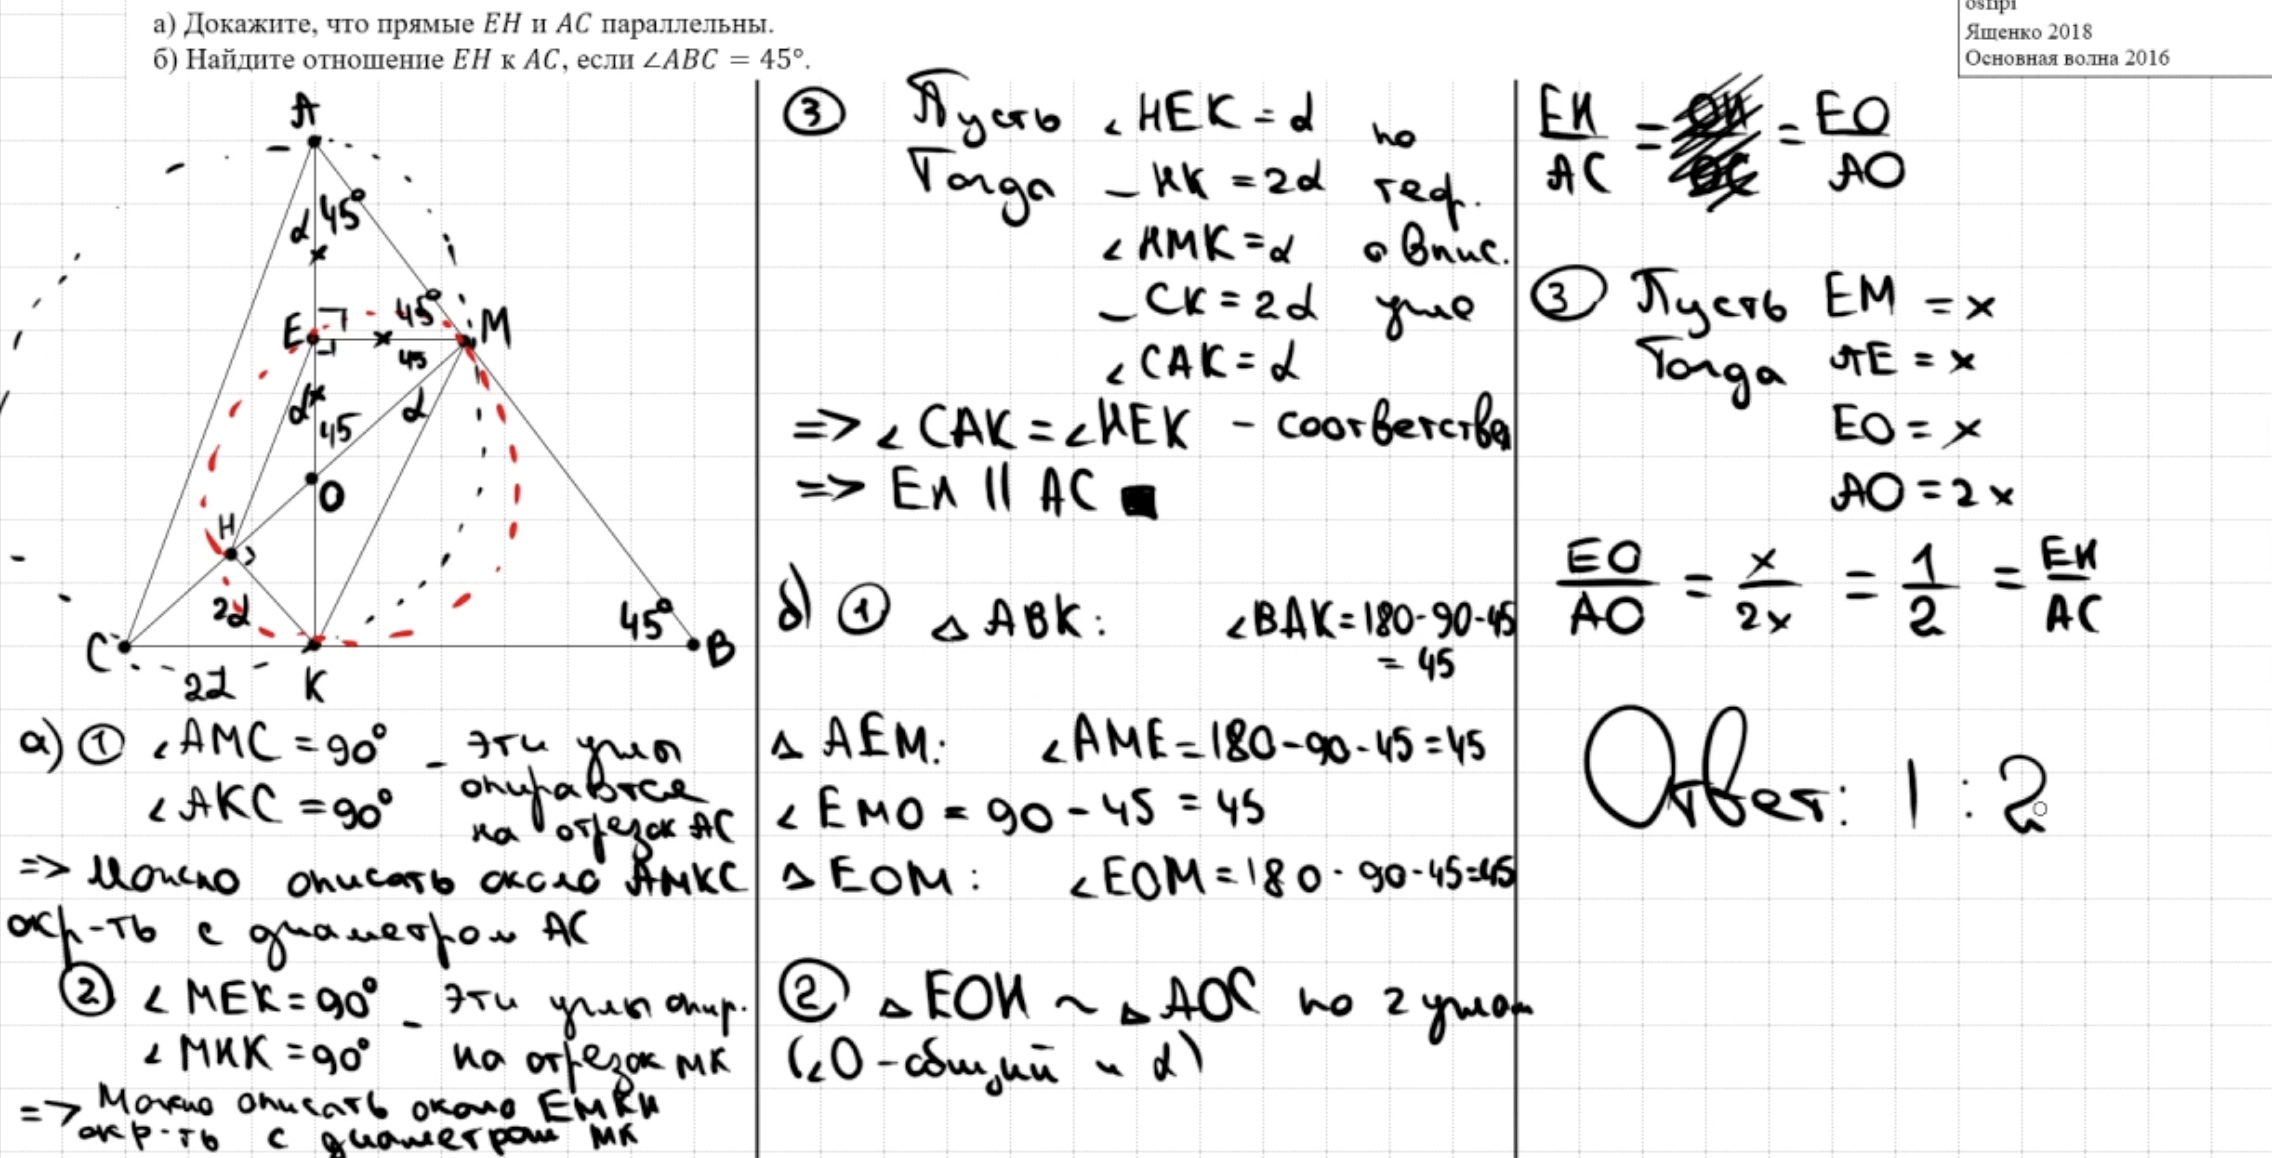 а) Докажите, что прямые EH и AC параллельны.
б) Найдите отношение EH к AC, если ∠ABC = 45°.
Ященко 2018
Основная волна 2016
A
α 45°
E
45°
M
45
α
45
α
O
H
2α
45°
C
B
2α
K
а) ① ∠AMC = 90° - эти углы
опираются
∠AKC = 90° на отрезок AC
=> Можно описать около AMKC
окр-ть с диаметром AC
② ∠MEK = 90° - эти углы опир.
∠MHK = 90° на отрезок MK
=> Можно описать около EMKH
окр-ть с диаметром MK
③ Пусть ∠HEK = α по
Тогда ◡HK = 2α теор.
∠HMK = α о впис.
◡CK = 2α угле
∠CAK = α
=> ∠CAK = ∠HEK - соответств
=> EH || AC ■
б) ① △ABK: ∠BAK = 180-90-45
= 45
△AEM: ∠AME = 180-90-45 = 45
∠EMO = 90 - 45 = 45
△EOM: ∠EOM = 180-90-45=45
② △EOH ~ △AOC по 2 углам
(∠O - общий и α)
EH/AC = = EO/AO
③ Пусть EM = x
Тогда AE = x
EO = x
AO = 2x
EO/AO = x/2x = 1/2 = EH/AC
Ответ: 1 : 2